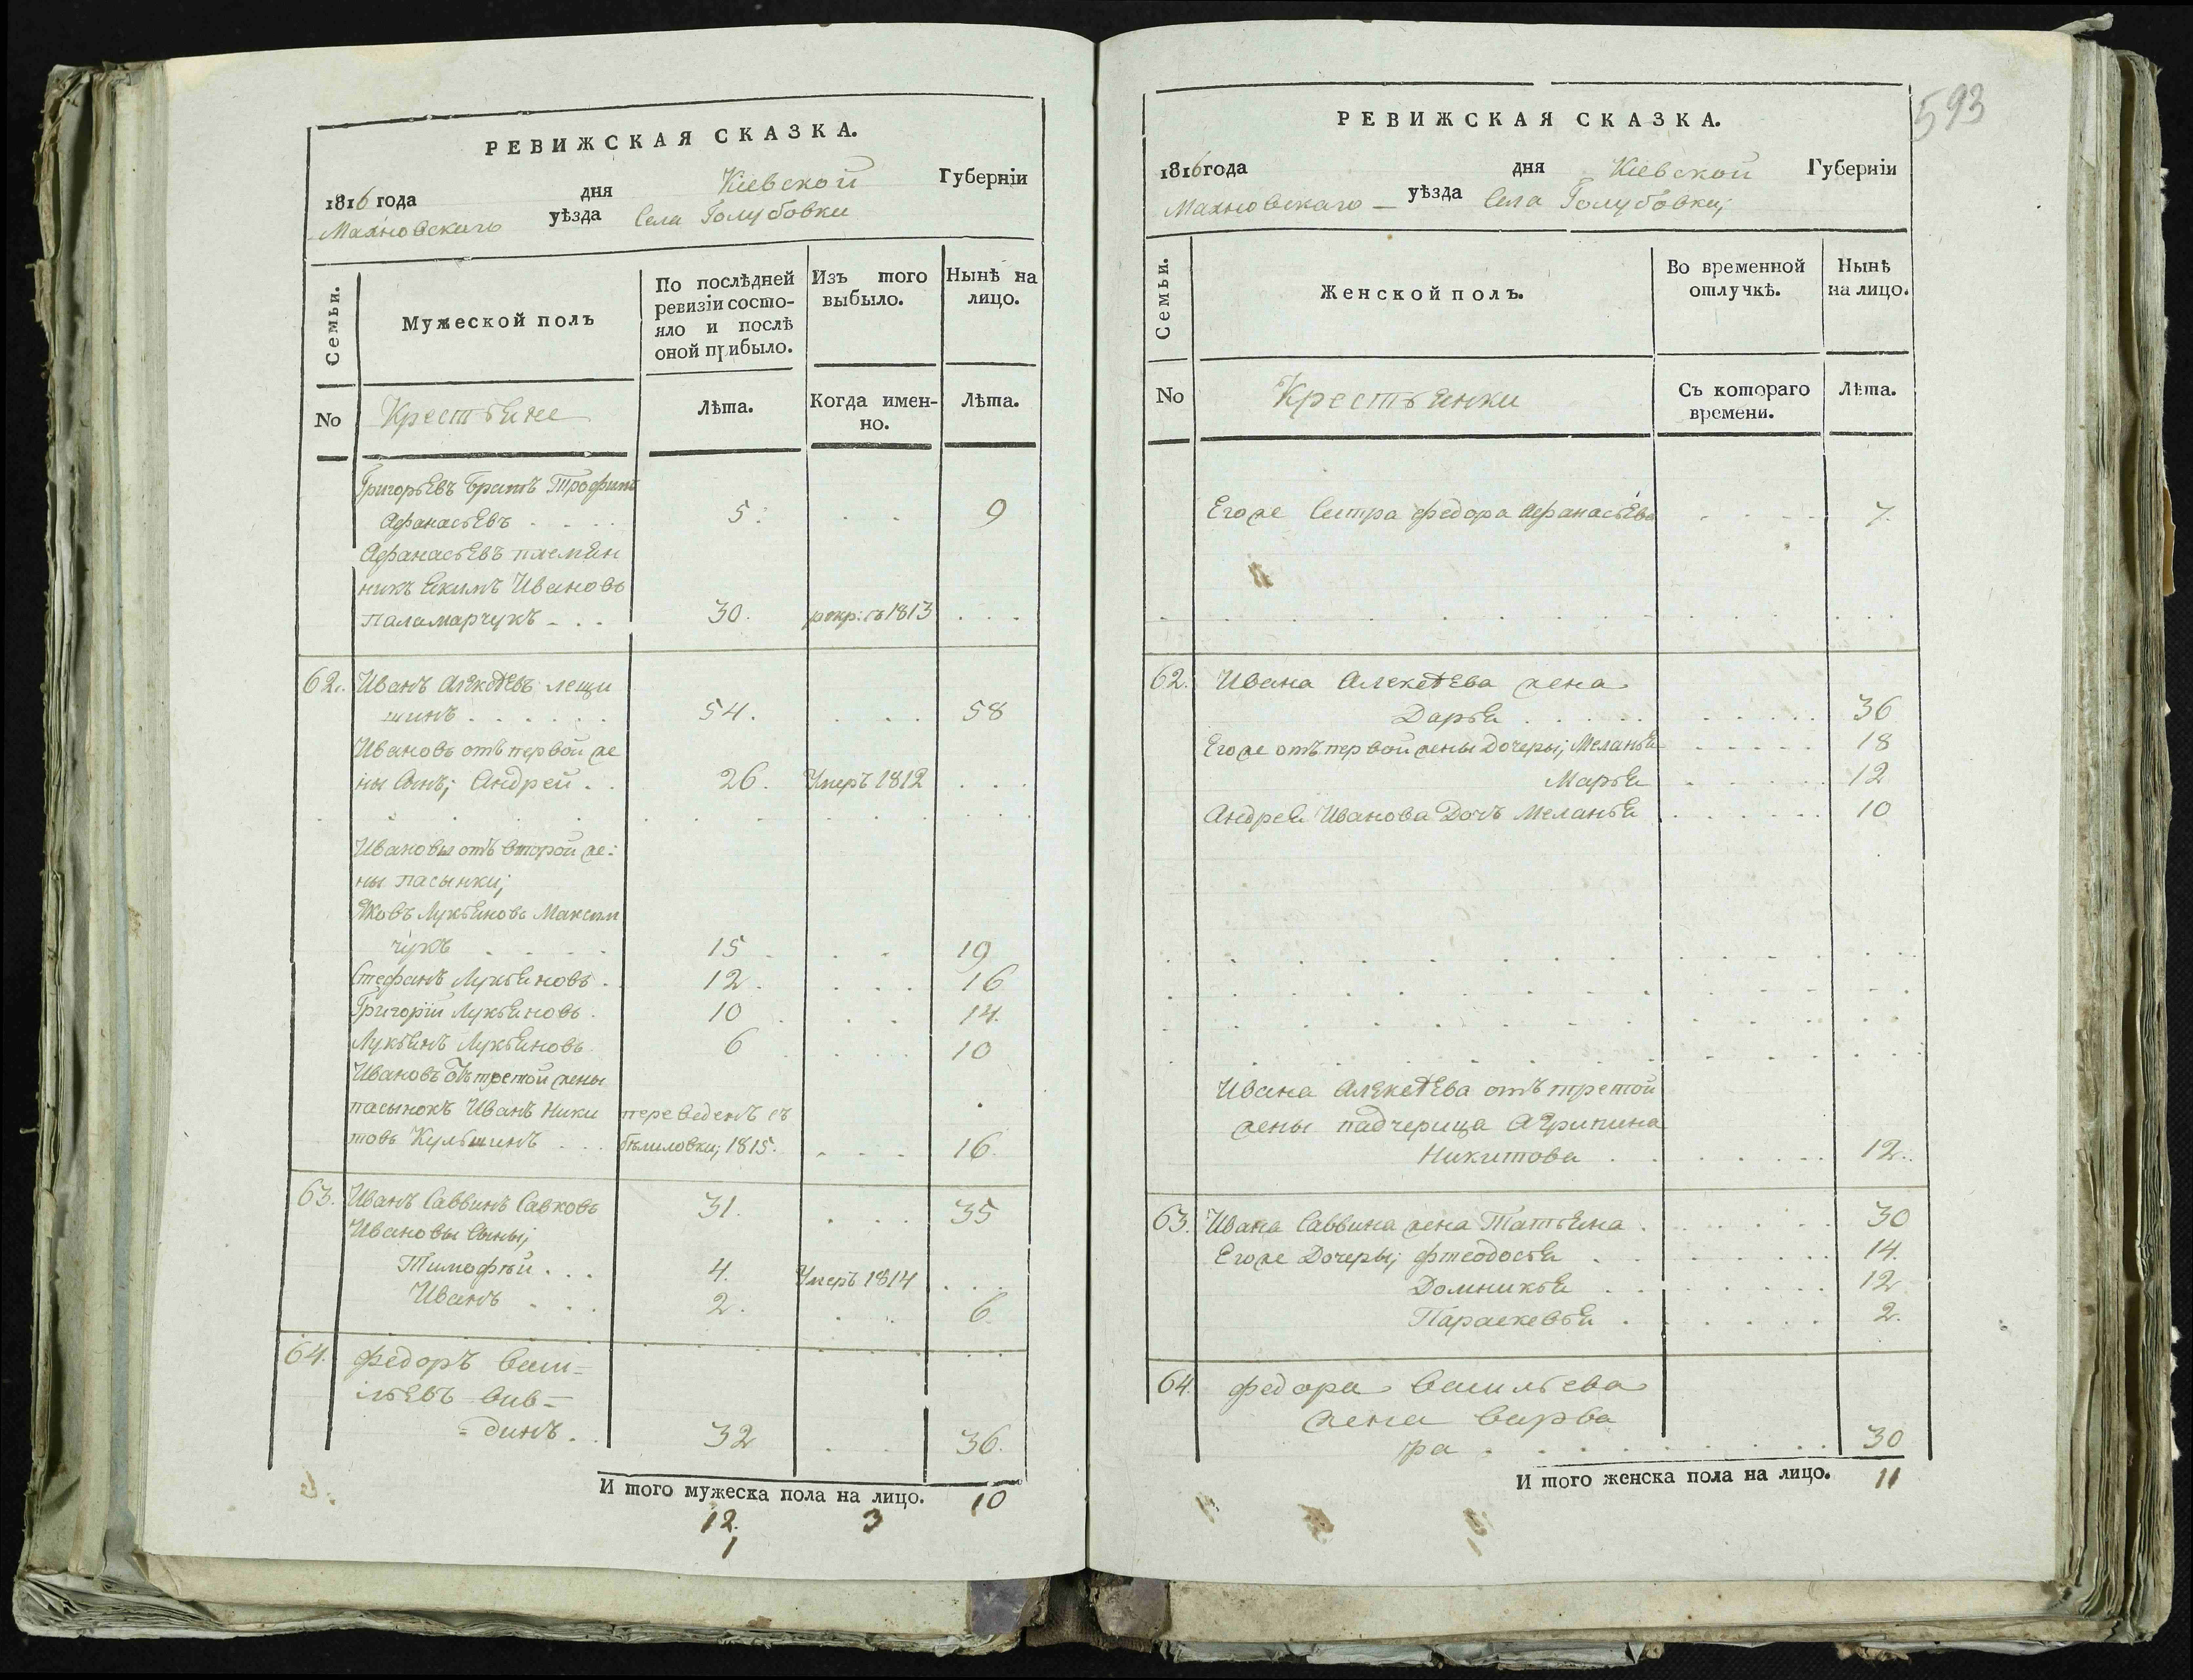 РЕВИЖСКАЯ СКАЗКА.
1816 года дня Кіевской Губерніи
Махновскаго уѣзда Села Голубовки
Семьи.
Мужеской полъ
По послѣдней ревизіи состо-
яло и послѣ оной прибыло.
Изъ того выбыло.
Нынѣ на лицо.
No
Крестьяне
Лѣта.
Когда имен-
но.
Лѣта.
Григорьевъ братъ Трофимъ
Афанасьевъ 5. 9
Афанасьевъ племян
никъ Якимъ Ивановъ
Паламарчукъ 30. рекр: въ 1813
62. Иванъ Алексѣевъ Лещи
шинъ 54. 58
Ивановъ отъ первой же
ны сынъ; Андрей 26. Умеръ 1812
Ивановы отъ второй же:
ны пасынки;
Яковъ Лукьяновъ Максим
чукъ 15 19
Стефанъ Лукьяновъ 12. 16
Григорій Лукьяновъ 10 14.
Лукьянъ Лукьяновъ 6 10
Ивановъ отъ третой жены
пасынокъ Иванъ Ники переведенъ съ
товъ Кульшинъ бѣлиловки; 1815. 16.
63. Иванъ Саввинъ Савковъ 31. 35
Ивановы сыны;
Тимофѣй 4. Умеръ 1814
Иванъ 2. 6
64. Федоръ Васи=
льевъ Вив=
=динъ 32 36.
И того мужеска пола на лицо. 10
12. 3
1
593
РЕВИЖСКАЯ СКАЗКА.
1816 года дня Кіевской Губерніи
Махновскаго — уѣзда Села Голубовки;
Семьи.
Женской полъ.
Во временной отлучкѣ.
Нынѣ на лицо.
No
Крестьянки
Съ котораго времени.
Лѣта.
Его же сестра Федора Афанасьева 7.
62. Ивана Алексѣева жена
Дарья 36
Его же отъ первой жены дочеры; Меланья 18
Марья 12
Андрея Иванова дочь Меланья 10
Ивана Алексѣева отъ третой
жены падчерица Агрипина
Никитова 12.
63. Ивана Саввина жена Татьяна 30
Его же дочеры; Фтеодосья 14.
Домникья 12
Параскевья 2.
64. Федора Васильева
жена Варва
ра 30
И того женска пола на лицо. 11